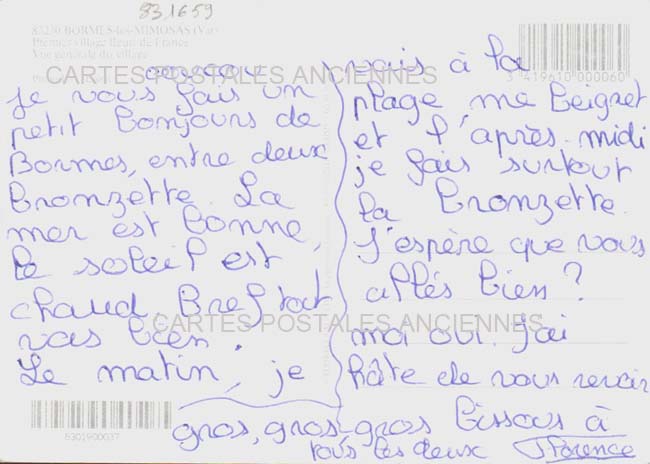 83,1659
83230 BORMES-les-MIMOSAS (Var)
Premier village fleuri de France
Vue générale du village
3 419610 000060
CARTES POSTALES ANCIENNES
je vous fais un
petit bonjours de
Bormes, entre deux
bronzette. La
mer est bonne,
le soleil est
chaud. Bref tout
vas bien.
Le matin, je
vais à la
plage, me beigner
et l'après-midi
je fais surtout
la bronzette.
J'espère que vous
allés bien?
moi oui. j'ai
hâte de vous revoir
CARTES POSTALES ANCIENNES
gros, gros-gros bissous à
tous les deux Florence
8301900037